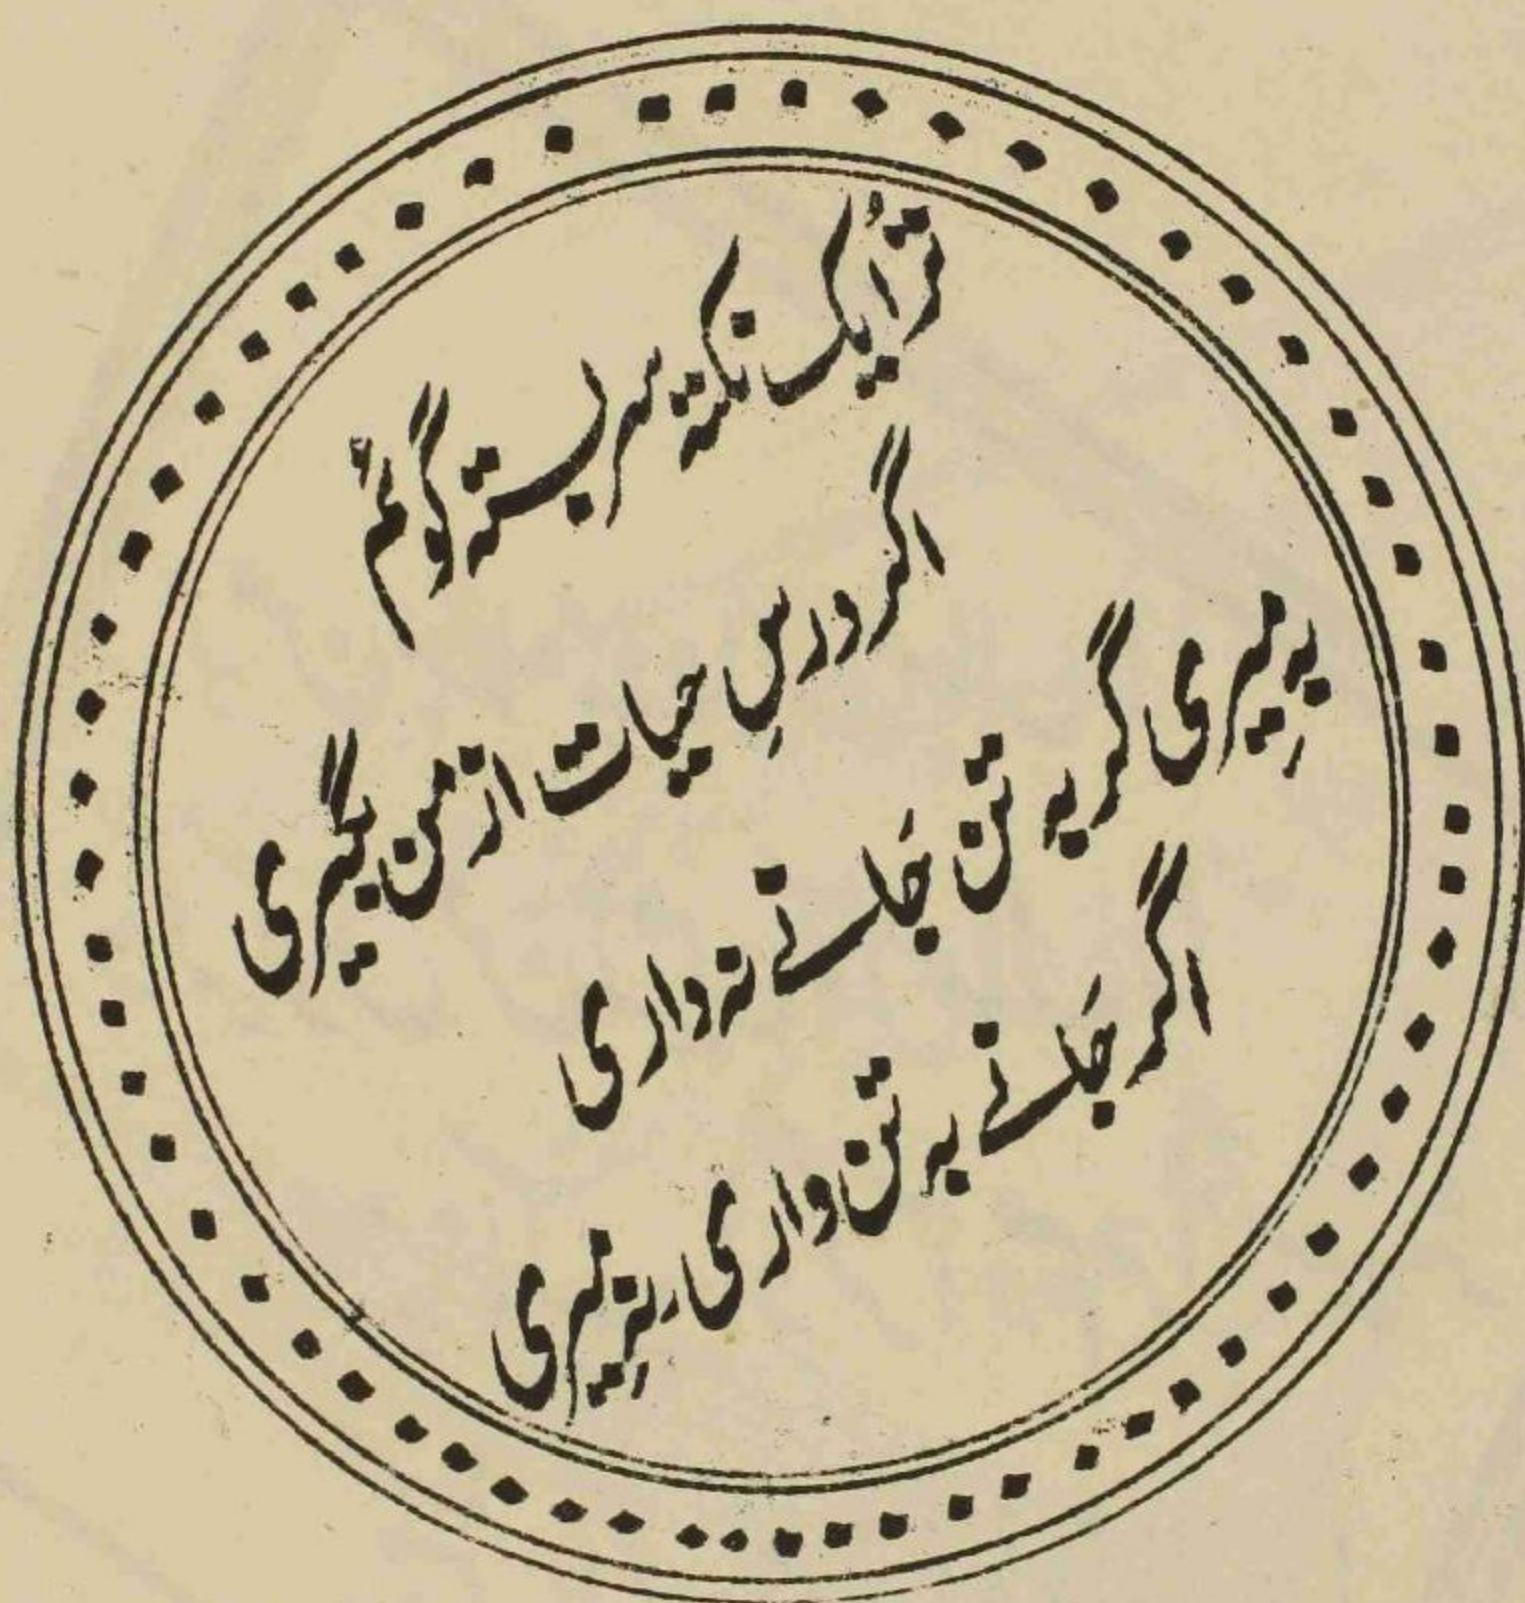 ترا یک نکتۂ سربستہ گوئم
اگر درسِ حیات از من بگیری
بِہ میری گر بہ تن جانے نہ داری
اگر جانے بہ تن داری، نہ میری